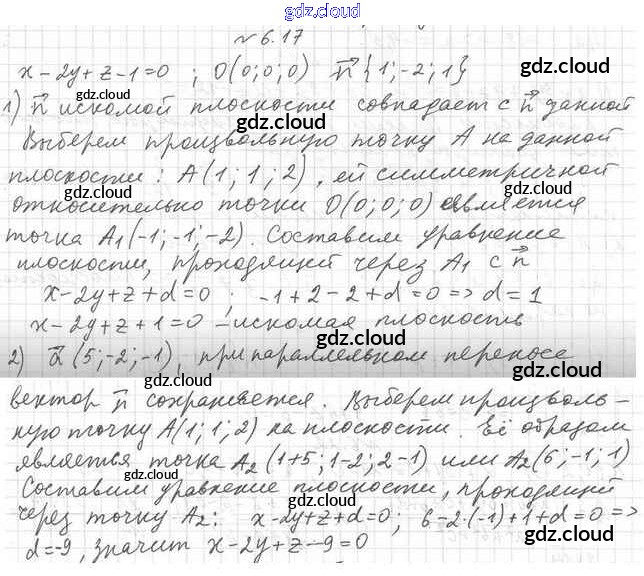 gdz.cloud
№ 6.17
x - 2y + z - 1 = 0 ; O(0; 0; 0) n⃗ {1; -2; 1}
gdz.cloud
1) n⃗ искомой плоскости совпадает с n⃗ данной
gdz.cloud gdz.cloud
Выберем произвольную точку A на данной
плоскости: A(1; 1; 2), ей симметричной
gdz.cloud gdz.cloud
относительно точки O(0; 0; 0) является
точка A₁(-1; -1; -2). Составим уравнение
gdz.cloud gdz.cloud
плоскости, проходящей через A₁ с n⃗
x - 2y + z + d = 0 ; -1 + 2 - 2 + d = 0 => d = 1
gdz.cloud
x - 2y + z + 1 = 0 - искомая плоскость
2) a⃗ (5; -2; -1), при параллельном переносе
gdz.cloud gdz.cloud
вектор n⃗ сохраняется. Выберем произволь-
gdz.cloud
ную точку A(1; 1; 2) на плоскости. Её образом
gdz.cloud
является точка A₂(1+5; 1-2; 2-1) или A₂(6; -1; 1)
gdz.cloud
Составим уравнение плоскости, проходящей
gdz.cloud
через точку A₂: x - 2y + z + d = 0, 6 - 2·(-1) + 1 + d = 0 =>
gdz.cloud
d = -9, значит x - 2y + z - 9 = 0
gdz.cloud gdz.cloud